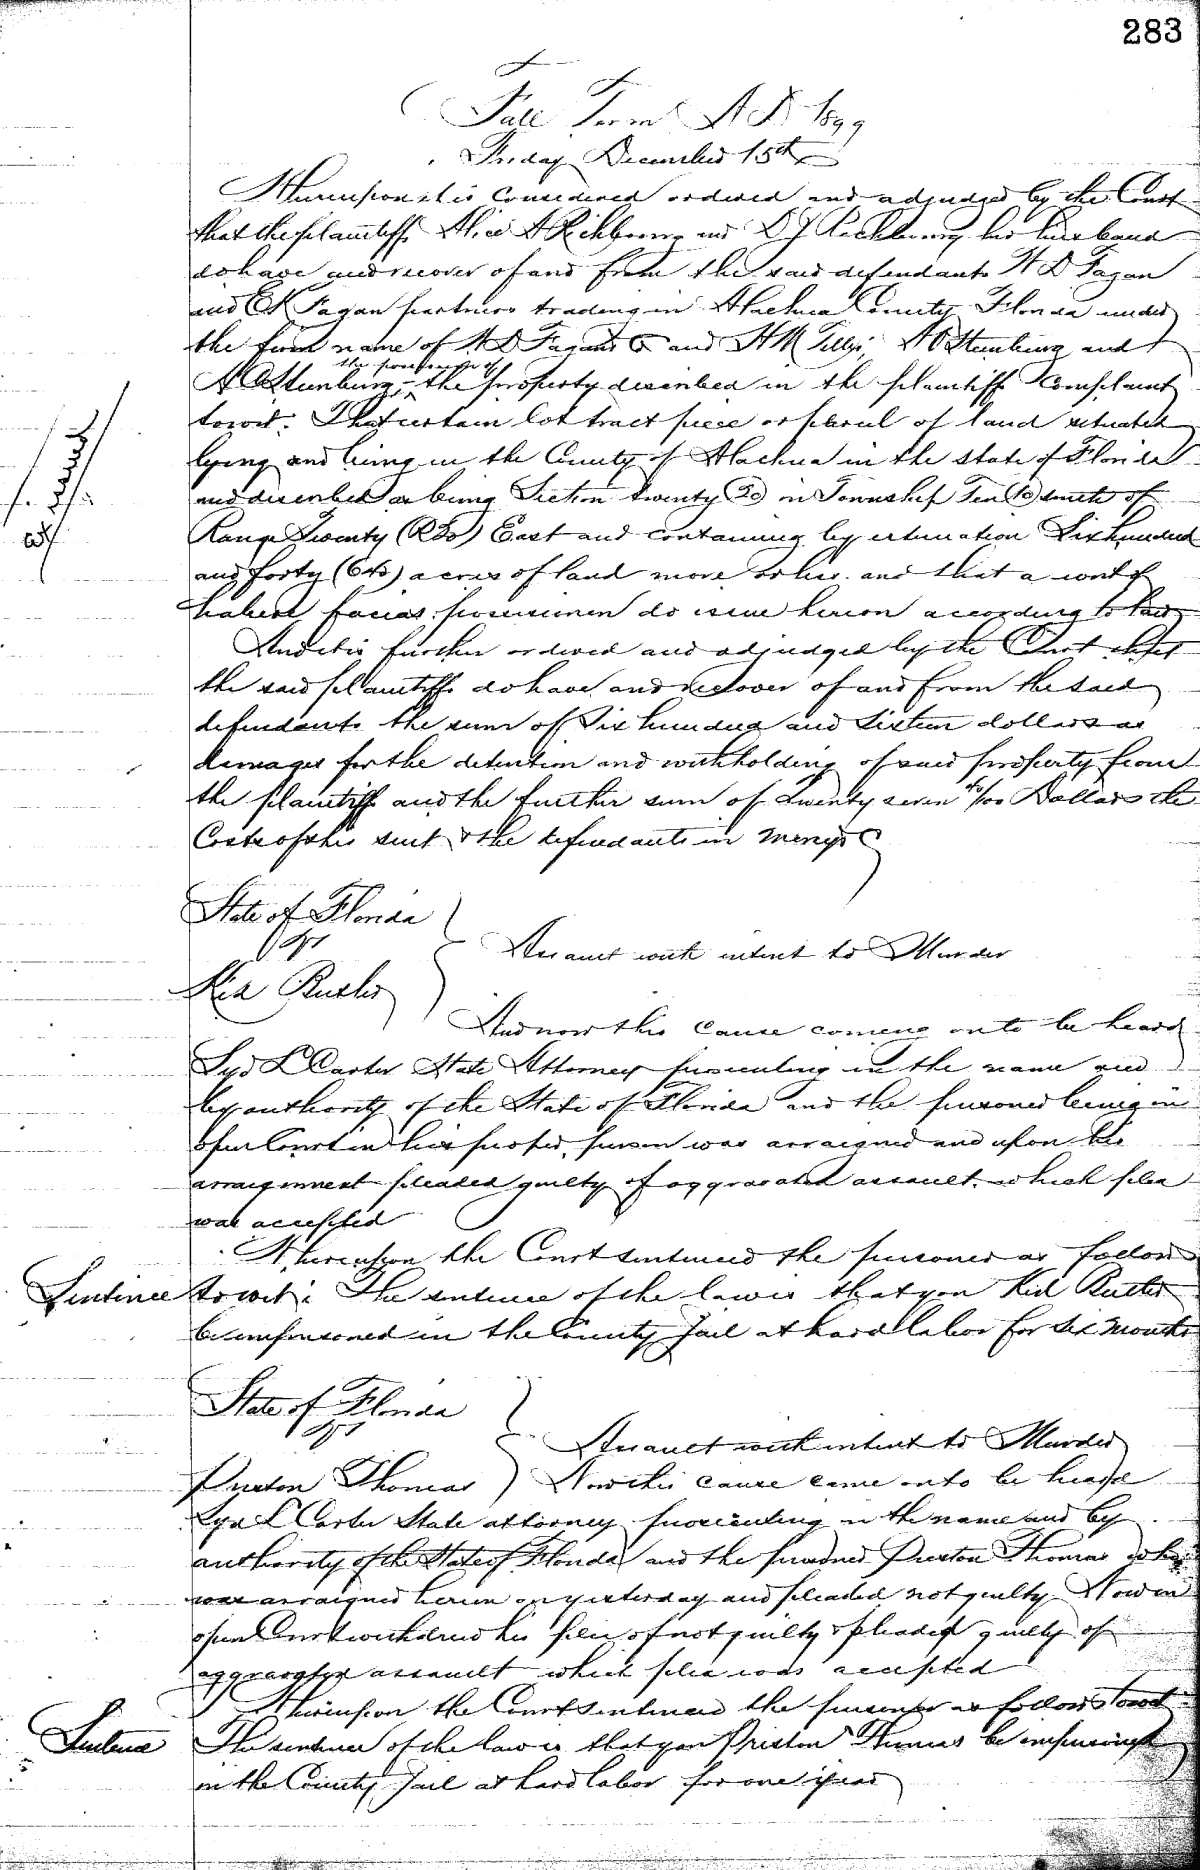 283
Fall Term A D 1899
Friday December 15th
Whereupon it is considered ordered and adjudged by the Court
that the plaintiffs Alice A Richbourg and D J Richbourg her husband
do have and recover of and from the said defendants W D Fagan
and E N Fagan partners trading in Alachua County Florida under
the firm name of W D Fagan & Co and H M and
the possession of
the property described in the plaintiffs Complaint
towit: That certain lot tract piece or parcel of land situated
lying and being in the County of Alachua in the state of Florida
and described as being Section twenty (20) in Township Ten (10) south of
Range Twenty (R20) East and containing by estimation Six hundred
and forty (640) acres of land more or less. and that a writ of
habere facias possessionem do issue hereon according to law
And it is further ordered and adjudged by the Court that
the said plaintiffs do have and recover of and from the said
defendants the sum of Six hundred and Sixteen dollars as
damages for the detention and withholding of said property from
the plaintiff and the further sum of twenty seven /100 Dollars the
Costs of this suit & the defendants in mercy &c
State of Florida
vs
Assault with intent to Murder
Kid Butler
And now this cause coming on to be heard
Syd L Carter State Attorney prosecuting in the name and
by authority of the State of Florida and the prisoner being in
open Court in his proper person was arraigned and upon his
arraignment pleaded guilty of aggravated assault. which plea
was accepted
Whereupon the Court sentenced the prisoner as follows
Sentence towit: The sentence of the law is that you Kid Butler
be imprisoned in the County Jail at hard labor for six months
State of Florida
vs
Assault with intent to Murder
Preston Thomas Now this cause came on to be heard
Syd L Carter State attorney prosecuting in the name and by
authority of the State of Florida and the prisoner Preston Thomas who
was arraigned herein on yesterday and pleaded not guilty Now in
open Court withdrew his plea of not guilty & pleaded guilty of
aggravated assault which plea was accepted
Whereupon the Court sentenced the prisoner as follows towit
Sentence The sentence of the law is that you Preston Thomas be imprisoned
in the County Jail at hard labor for one year